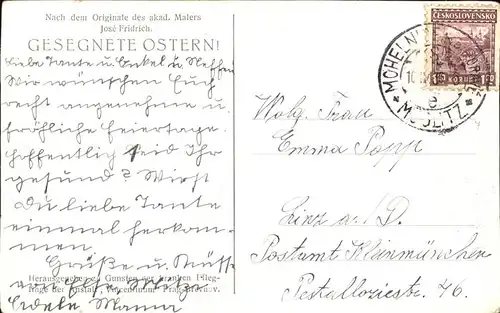 Nach dem Originale des akad. Malers
José Fridrich.
GESEGNETE OSTERN!
Liebe Tante u. Onkel u. Neffen
Wir wünschen Euch
recht angenehme u.
fröhliche Feiertage.
Hoffentlich seid Ihr
gesund? Wirst
Du liebe Tante
einmal herkom-
men.
Grüße u. Küsse
von Else, Mitze
Mama
Herausgegeben zu Gunsten der kranken Pfleg-
linge der Anstalt „Vincentinum“ Prag-Břevnov.
ČESKOSLOVENSKO
MOHELNICE
MÜGLITZ
Wolg. Frau
Emma Popp
Linz a./D.
Postamt Kleinmünchen
Pestalloziestr. 46.